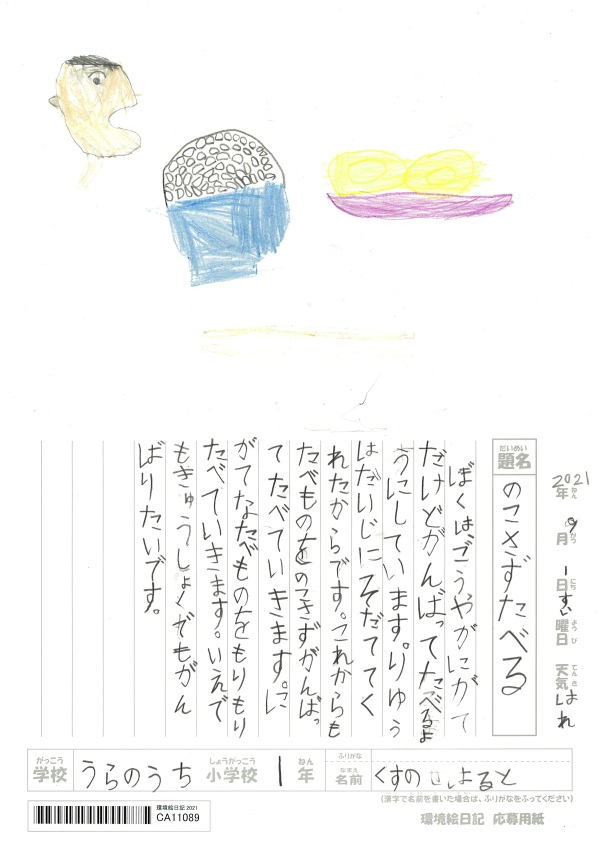 2021年 9月 1日 すい曜日 天気 はれ
ねん がつ にち ようび てんき
だいめい
題名
のこさずたべる
ぼくは、ごうやがにがて
だけどがんばってたべるよ
うにしています。りゆう
はだいじにそだててく
れたからです。これからも
たべものをのこさずがんばっ
てたべていきます。に
がてなたべものをもりもり
たべていきます。いえで
もきゅうしょくでもがん
ばりたいです。
がっこう
学校
うらのうち
しょうがっこう
小学校
1
ねん
年
ふりがな
なまえ
名前
くすの
と
(漢字で名前を書いた場合は、ふりがなをふってください)
環境絵日記2021
CA11089
環境絵日記 応募用紙